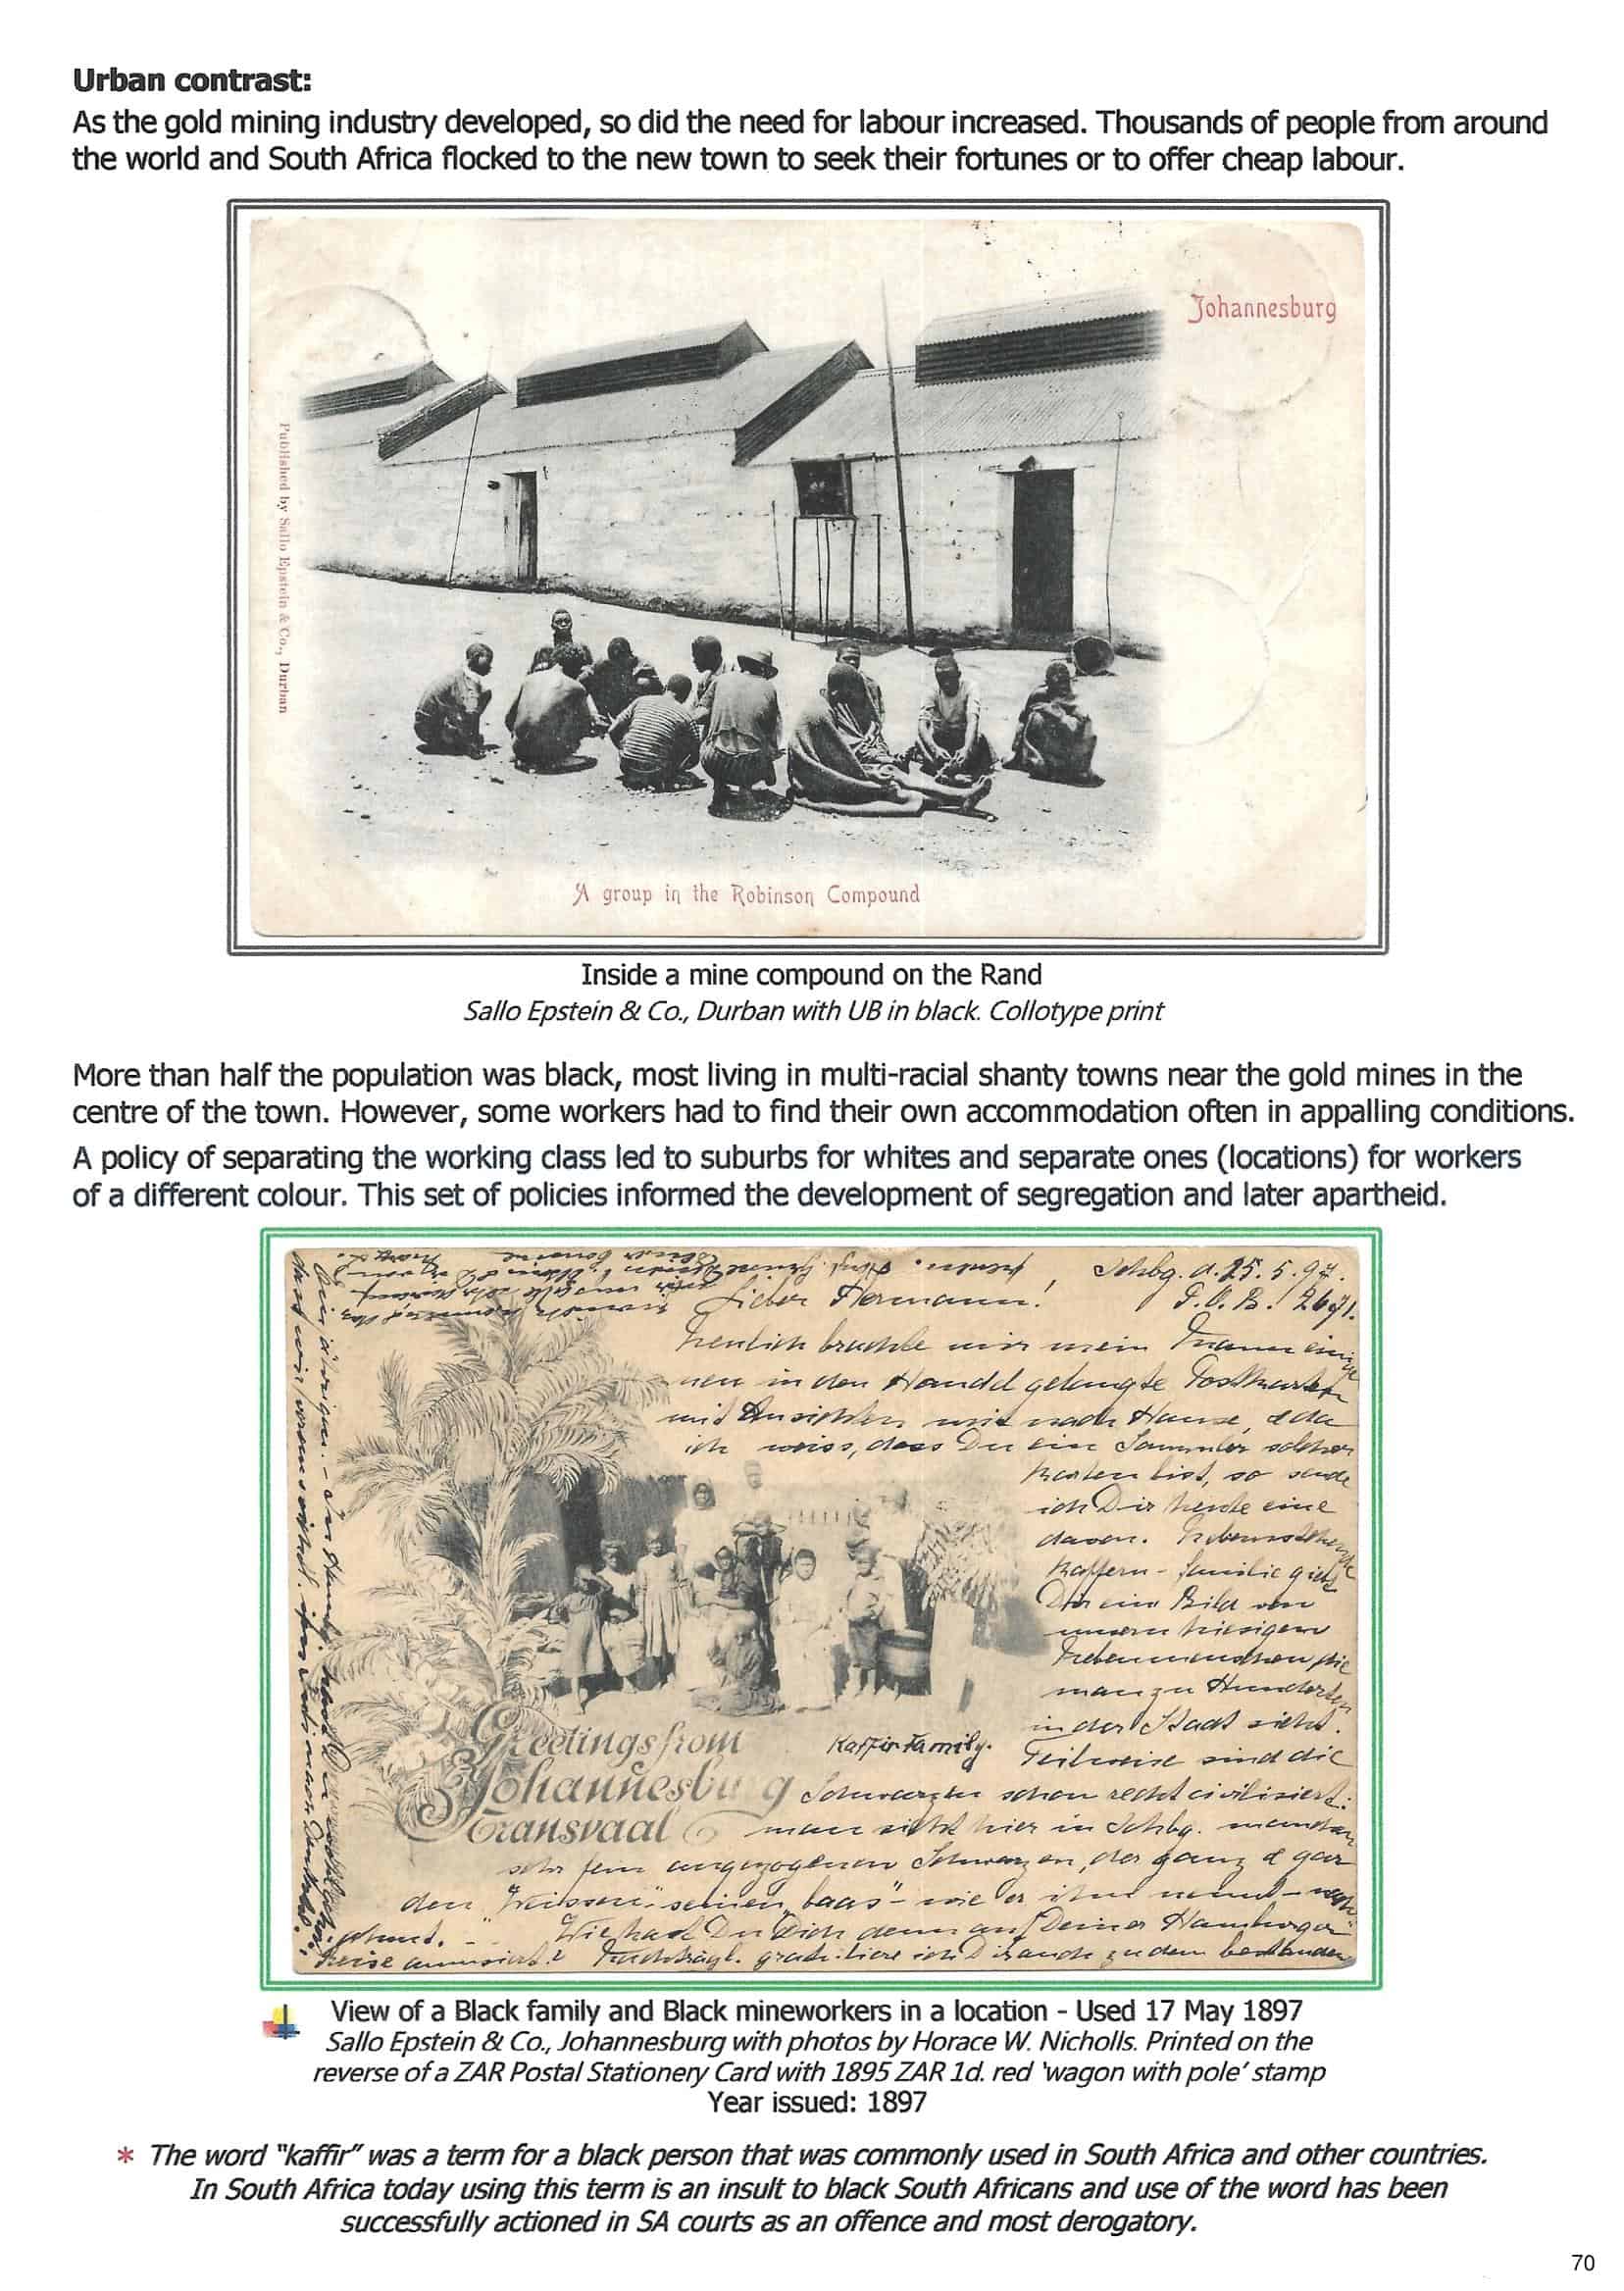 Urban contrast:
As the gold mining industry developed, so did the need for labour increased. Thousands of people from around
the world and South Africa flocked to the new town to seek their fortunes or to offer cheap labour.
Johannesburg
Published by Sallo Epstein & Co., Durban
A group in the Robinson Compound
Inside a mine compound on the Rand
Sallo Epstein & Co., Durban with UB in black. Collotype print
More than half the population was black, most living in multi-racial shanty towns near the gold mines in the
centre of the town. However, some workers had to find their own accommodation often in appalling conditions.
A policy of separating the working class led to suburbs for whites and separate ones (locations) for workers
of a different colour. This set of policies informed the development of segregation and later apartheid.
Johbg. d. 25. 5. 97.
Lieber Hermann! P.O.B. 2671.
Neulich brachte mir mein Mann einige
neu in den Handel gelangte Postkarten
mit Ansichten mit nach Hause, & da
ich weiss, dass Du ein Sammler solcher
Karten bist, so sende
ich Dir heute eine
davon.
Kaffern-familie giebt
Dir ein Bild von
unsern hiesigen
Nebenmenschen, die
man zu Hunderten
in der Stadt sieht.
Teilweise sind die
Greetings from
Johannesburg
Transvaal
Kaffir Family.
Schwarzen schon recht civilisiert:
man sieht hier in Johbg. manchen
sehr fein angezogenen Schwarzen, der ganz & gar
den "Weissen" seinen "baas" - wie er ihn nennt -
Wie hast Du Dich denn auf Deiner Hamburger
Reise amüsiert? Nachträgl. gratuliere ich Dir auch zu dem bestandenen
View of a Black family and Black mineworkers in a location - Used 17 May 1897
Sallo Epstein & Co., Johannesburg with photos by Horace W. Nicholls. Printed on the
reverse of a ZAR Postal Stationery Card with 1895 ZAR 1d. red 'wagon with pole' stamp
Year issued: 1897
* The word "kaffir" was a term for a black person that was commonly used in South Africa and other countries.
In South Africa today using this term is an insult to black South Africans and use of the word has been
successfully actioned in SA courts as an offence and most derogatory.
70